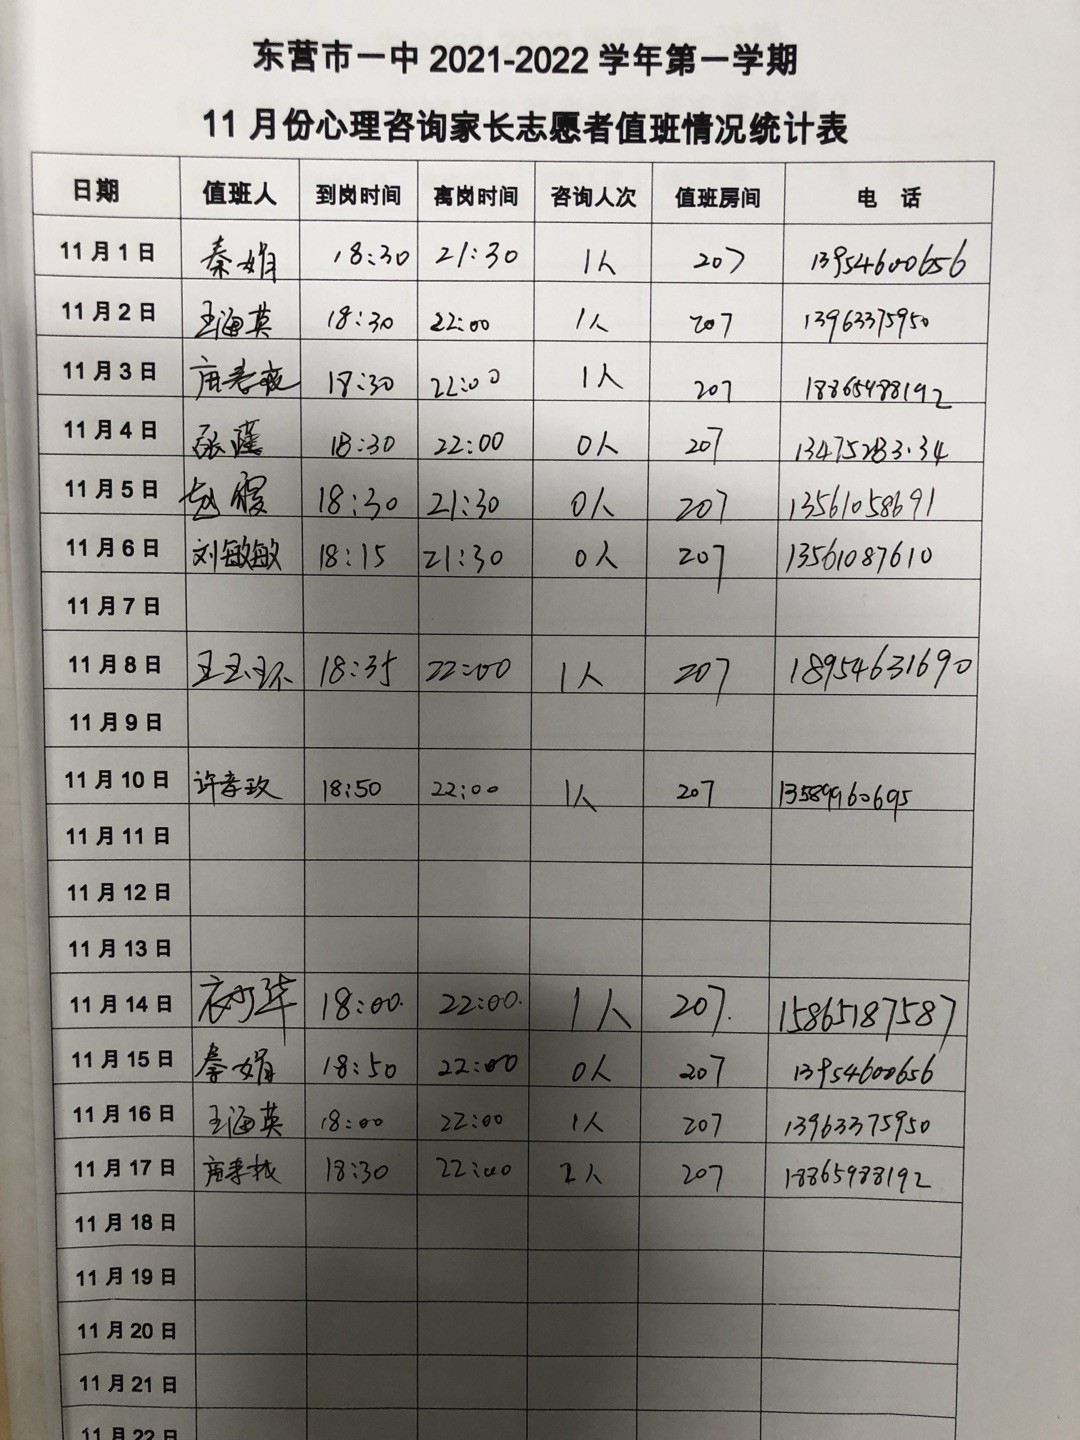 东营市一中 2021-2022 学年第一学期
11 月份心理咨询家长志愿者值班情况统计表
日期 值班人 到岗时间 离岗时间 咨询人次 值班房间 电 话
11 月 1 日 秦娟 18:30 21:30 1人 207 13954600656
11 月 2 日 王海英 18:30 22:00 1人 207 13963375950
11 月 3 日 18:30 22:00 1人 207 18865988192
11 月 4 日 18:30 22:00 0人 207
11 月 5 日 赵霞 18:30 21:30 0人 207 13561058691
11 月 6 日 刘敏敏 18:15 21:30 0人 207 13561087610
11 月 7 日
11 月 8 日 王玉环 18:35 22:00 1人 207 18954631690
11 月 9 日
11 月 10 日 许孝玫 18:50 22:00 1人 207 13589960695
11 月 11 日
11 月 12 日
11 月 13 日
11 月 14 日 18:00. 22:00. 1人 207. 15865187587
11 月 15 日 秦娟 18:50 22:00 0人 207 13954600656
11 月 16 日 王海英 18:00 22:00 1人 207 13963375950
11 月 17 日 18:30 22:00 2人 207 18865988192
11 月 18 日
11 月 19 日
11 月 20 日
11 月 21 日
11 月 22 日